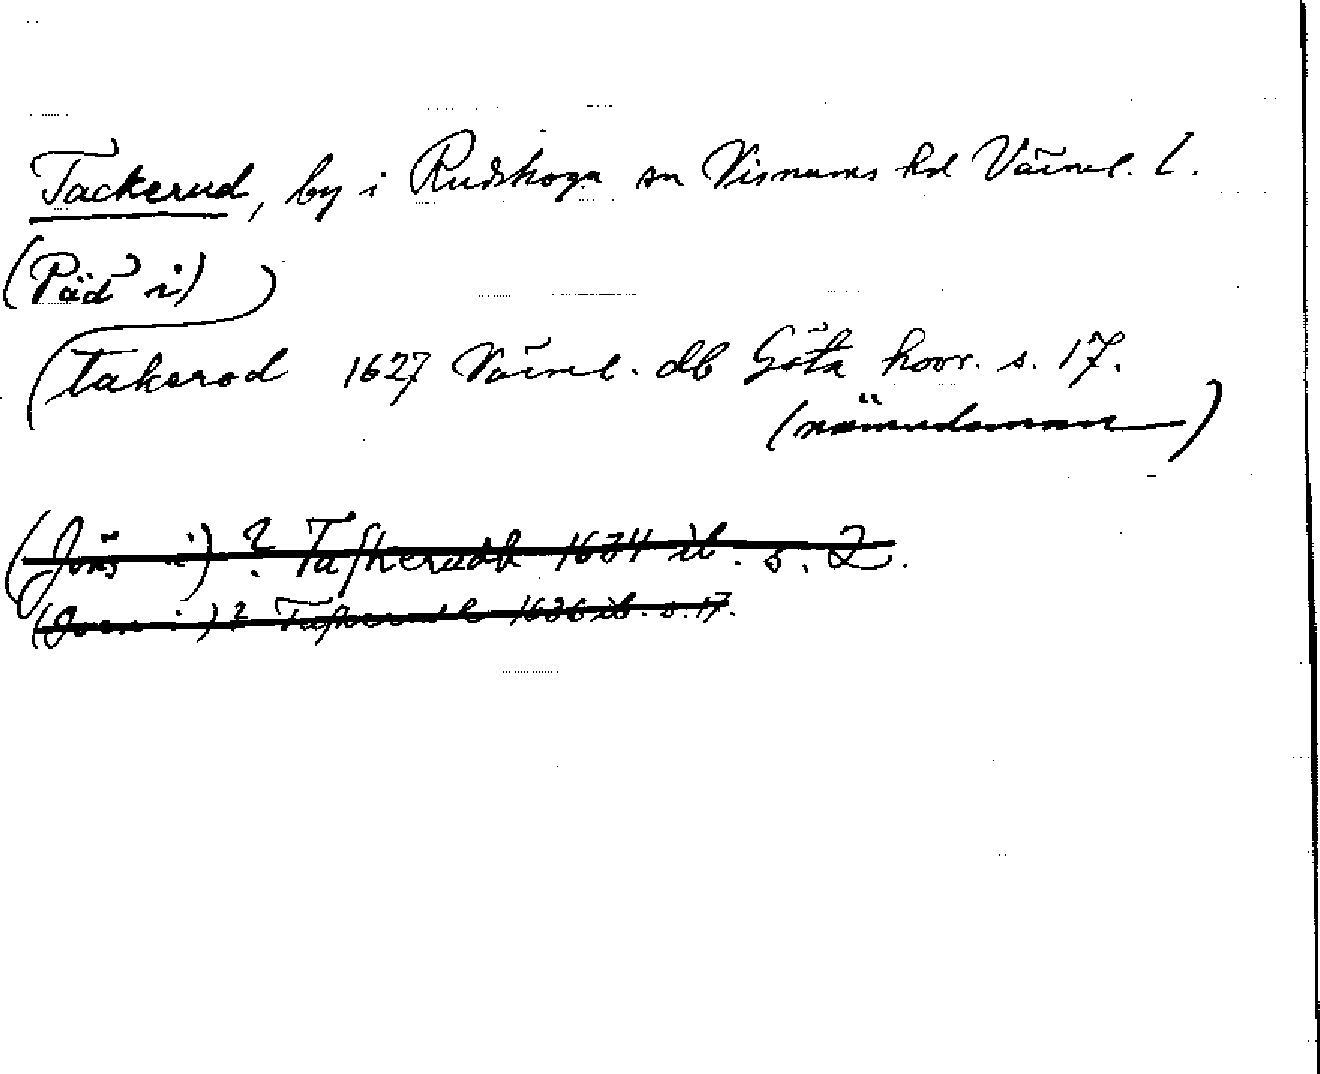 Tackerud, by i Rudskoga sn Visnums hd Värml. l.
(Päd i)
Takerod 1627 Värml. db Göta hovr. s. 17.
(nämndeman)
(Jöns i) ? Tafkerudh 1634 ib. s. 2.
(Joen i) ? Tafkerudh 1636 ib. s. 17.